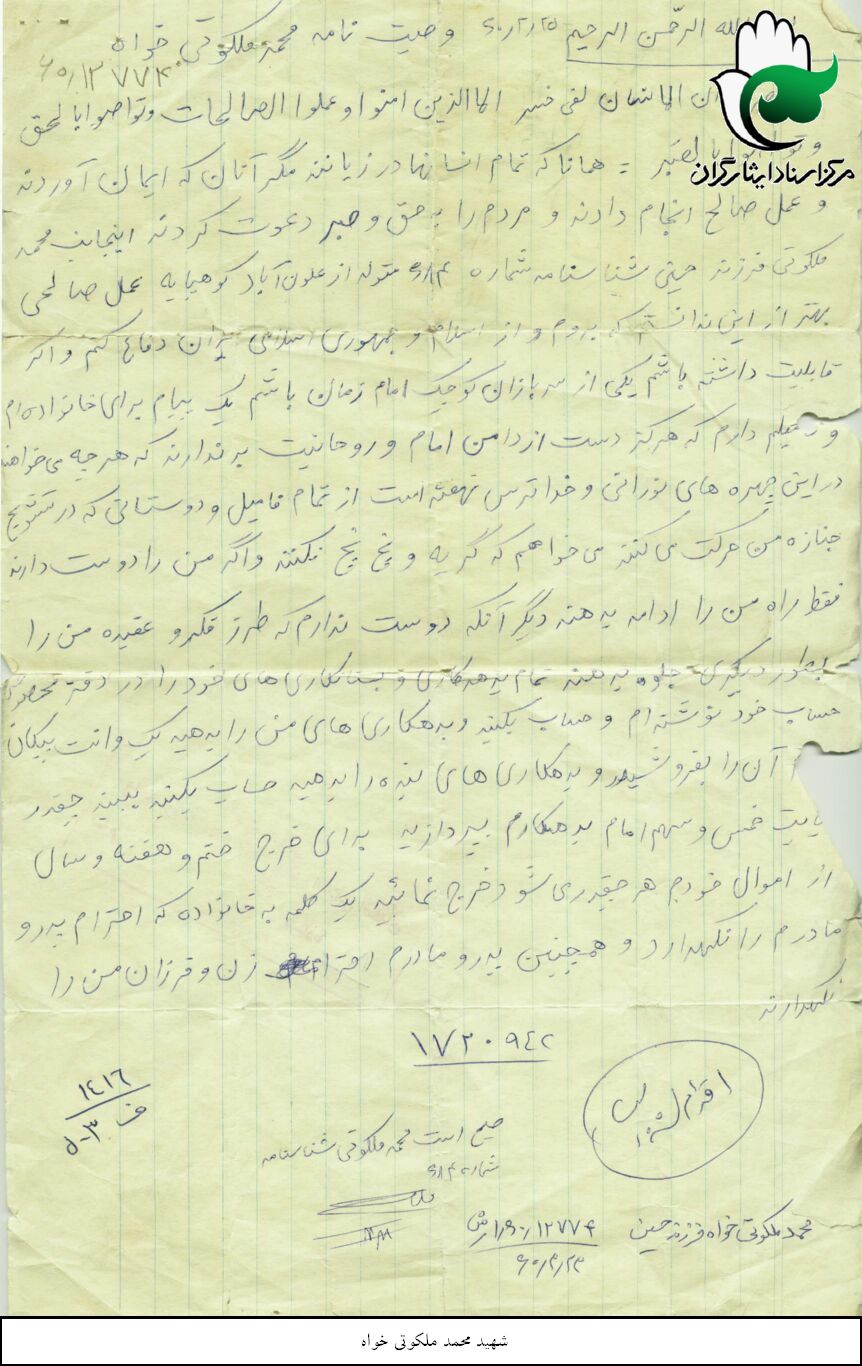 الله الرحمن الرحیم ۶۰/۲/۲۵ وصیت نامه محمد ملکوتی خواه
۶۰/۱۲۷۷۴
مرکز اسناد ایثارگران
ان الانسان لفی خسر الا الذین امنوا و عملوا الصالحات و تواصوا بالحق
و تواصوا بالصبر = همانا که تمام انسانها در زیانند مگر آنان که ایمان آوردند
و عمل صالح انجام دادند و مردم را به حق و صبر دعوت کردند اینجانب محمد
ملکوتی فرزند حسین شناسنامه شماره ۶۸۴ متولد از علون آباد کوهپایه عمل صالحی
بهتر از این ندانستم که بروم و از اسلام و جمهوری اسلامی ایران دفاع کنم و اگر
قابلیت داشته باشم یکی از سربازان کوچک امام زمان باشم یک پیام برای خانواده ام
و فامیلم دارم که هرگز دست از دامن امام و روحانیت برندارند که هر چه می خواهند
در این چهره های نورانی و خداترس نهفته است از تمام فامیل و دوستانی که در تشییع
جنازه من حرکت می کنند می خواهم که گریه و نچ نچ نکنند و اگر من را دوست دارند
فقط راه من را ادامه بدهند دیگر آنکه دوست ندارم که طرز فکر و عقیده من را
بطور دیگری جلوه بدهند تمام بدهکاری و بستانکاری های خود را در دفتر مخصوص
حساب خود نوشته ام و حساب بکنید و بدهکاری های من را بدهید یک وانت پیکان
آن را بفروشید و بدهکاری های بنده را بدهید حساب بکنید ببینید چقدر
بابت خمس و سهم امام بدهکارم بپردازید برای خرج ختم و هفته و سال
از اموال خودم هر چقدری شود خرج نمائید یک کلمه به خانواده که احترام پدر و
مادرم را نگهدارد و همچنین پدر و مادرم احترام زن و فرزندان من را
نگهدارند
۱۷۲۰۹۴۲
۱۴۱۶
ف ۵۰۳
صحیح است محمد ملکوتی شناسنامه
شماره ۶۸۴
محمد ملکوتی خواه فرزند حسین
۶۰/۱۲۷۷۴
۶۰/۳/۲۳
شهید محمد ملکوتی خواه